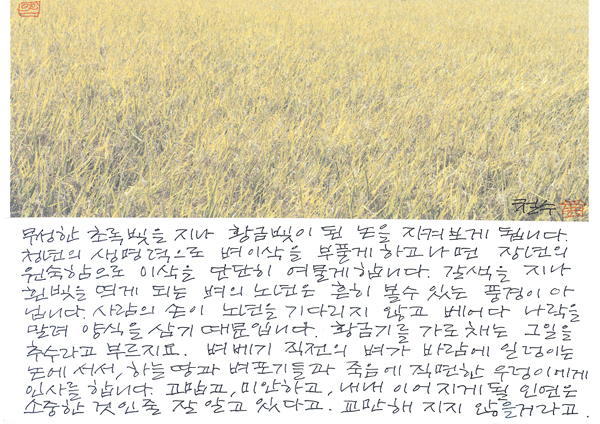 철수
무성한 초록빛을 지나 황금빛이 된 논을 지켜보게 됩니다.
청년의 생명력으로 벼이삭을 부풀게 하고나면 장년의
원숙함으로 이삭을 단단히 여물게합니다. 갈색을 지나
흰빛을 띄게 되는 벼의 노년은 흔히 볼수 있는 풍경이 아
닙니다. 사람의 손이 노년을 기다리지 않고 베어다 나락을
말려 양식을 삼기 때문입니다. 황금기를 가로채는 그일을
추수라고 부르지요. 벼베기 직전의 벼가 바람에 일렁이는
논에 서서, 하늘 땅과 벼포기들과 죽음에 직면한 우렁이에게
인사를 합니다. 고맙고, 미안하고, 내내 이어지게될 인연은
소중한 것인줄 잘 알고 있다고. 교만해 지지 않을거라고.